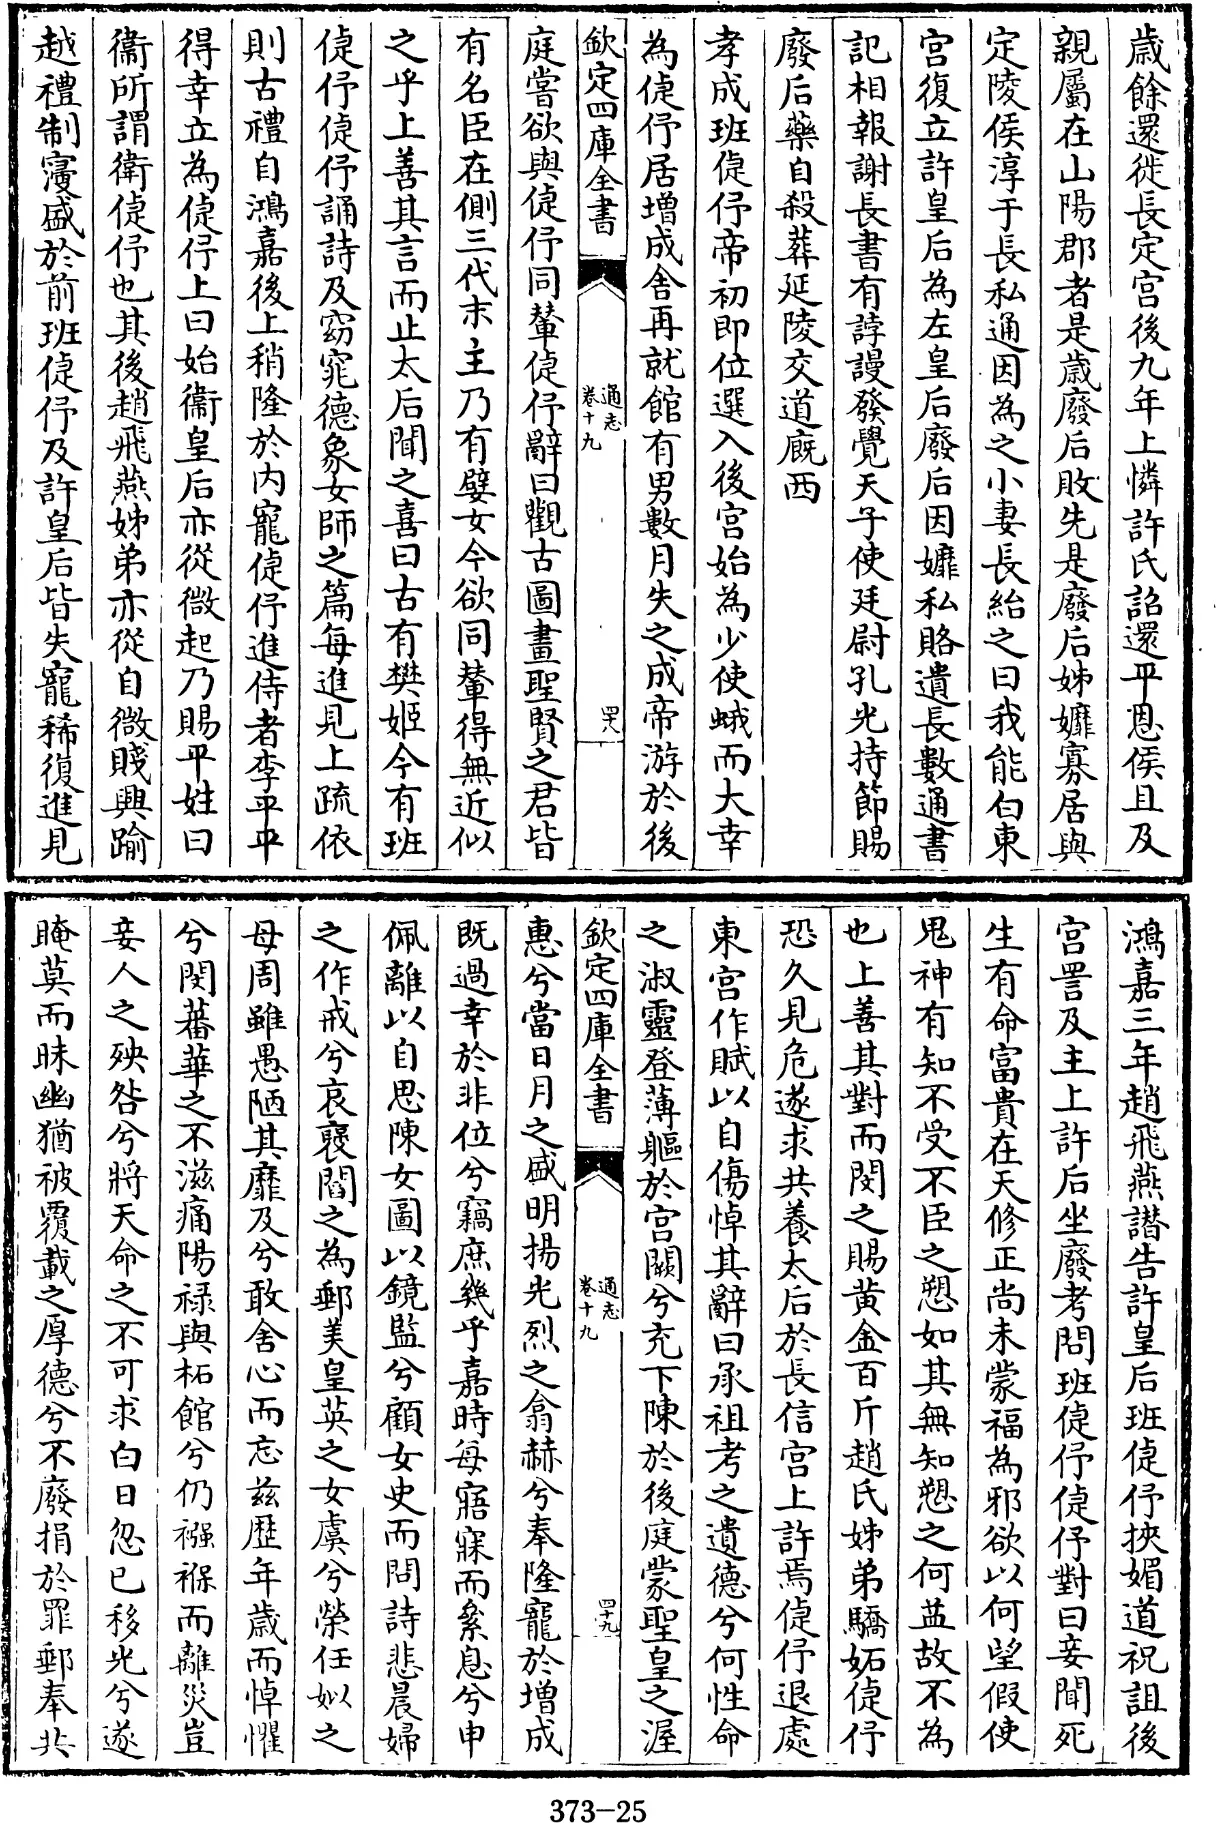 歳餘還徙長定宫後九年上憐許氏詔還平恩侯且及
親屬在山陽郡者是歳廢后敗先是廢后姊孊寡居與
定陵侯淳于長私通因為之小妻長紿之曰我能白東
宫復立許皇后為左皇后廢后因孊私賂遺長數通書
記相報謝長書有誖謾發覺天子使廷尉孔光持節賜
廢后藥自殺葬延陵交道廐西
孝成班倢伃帝初即位選入後宫始為少使蛾而大幸
為倢伃居增成舎再就館有男數月失之成帝游於後
欽定四庫全書
通志
卷十九
四十八
庭嘗欲與倢伃同輦倢伃辭曰觀古圖畫聖賢之君皆
有名臣在側三代末主乃有嬖女今欲同輦得無近似
之乎上善其言而止太后聞之喜曰古有樊姬今有班
倢伃倢伃誦詩及窈窕德象女師之篇每進見上疏依
則古禮自鴻嘉後上稍隆於内寵倢伃進侍者李平平
得幸立為倢伃上曰始衞皇后亦從微起乃賜平姓曰
衞所謂衛倢伃也其後趙飛燕姊弟亦從自微賤興踰
越禮制寖盛於前班倢伃及許皇后皆失寵稀復進見
鴻嘉三年趙飛燕譛告許皇后班倢伃挾媚道祝詛後
宫詈及主上許后坐廢考問班倢伃倢伃對曰妾聞死
生有命富貴在天修正尚未蒙福為邪欲以何望假使
鬼神有知不受不臣之愬如其無知愬之何益故不為
也上善其對而閔之賜黄金百斤趙氏姊弟驕妬倢伃
恐久見危遂求共養太后於長信宫上許焉倢伃退處
東宫作賦以自傷悼其辭曰承祖考之遺德兮何性命
之淑靈登薄軀於宫闕兮充下陳於後庭蒙聖皇之渥
欽定四庫全書
通志
卷十九
四十九
惠兮當日月之盛明揚光烈之翕赫兮奉隆寵於增成
既過幸於非位兮竊庶幾乎嘉時每寤寐而絫息兮申
佩離以自思陳女圖以鏡監兮顧女史而問詩悲晨婦
之作戒兮哀褒閻之為郵美皇英之女虞兮榮任姒之
母周雖愚陋其靡及兮敢舍心而忘兹歴年歳而悼懼
兮閔蕃華之不滋痛陽禄與柘館兮仍襁褓而離災豈
妾人之殃咎兮將天命之不可求白日忽已移光兮遂
晻莫而昧幽猶被覆載之厚德兮不廢捐於罪郵奉共
373-25